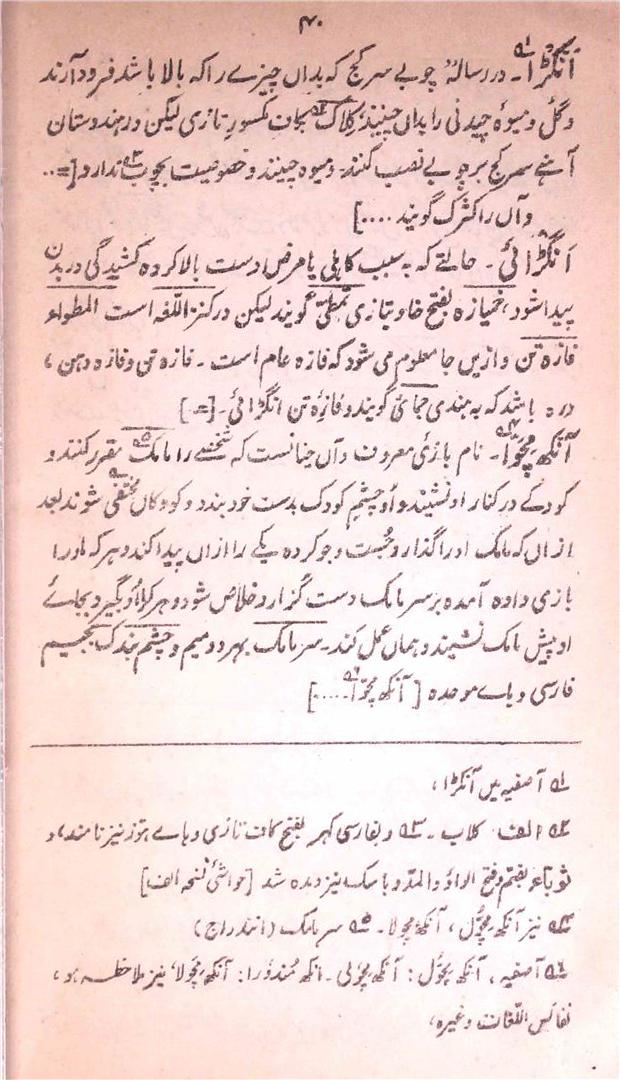 ۴۰
آنکڑا۔ در رسالہ، چوبے سرکج کہ بداں چیزے راکہ بالا باشد فرود آرند
و گل و میوۂ چیدنی را بداں چینند، کلاک بکاف مکسور تازی لیکن در ہندوستان
آہنے سرکج بر چوبے نصب کنند۔ و میوہ چینند و خصوصیت بچوب ندارد [=..
و آں را کترک گویند ....]
انگڑائی۔ حالتے کہ بہ سبب کاہلی یا مرض ادست بالا کردہ کشیدگی در بدن
پیدا شود، خمیازہ بفتح خا و بتازی تمطّی گویند لیکن در کنز اللغہ است المطواء
فازہ تن و ازیں جا معلوم می شود کہ فازہ عام است۔ فازہ تن و فازہ دہن،
درہ باشد کہ بہندی جمائی گویند و فازۂ تن انگڑائی۔ [=.]
آنکھ مچّوا۔ نام بازئی معروف و آں چنانست کہ شخصے را مامک مقرر کنند و
کودکے در کنار او نشیند و او چشم کودک بدست خود بندد و کودکاں مختفی شوند بعد
ازاں کہ مامک او را گذارد و جست و جو کردہ یکے را ازاں پیدا کند و ہر کہ او را
بازی دادہ آمدہ بر سر مامک دست گذارد خلاص شود و ہر کرا او بگیرد بجائے
او پیش مامک نشیند و ہماں عمل کند۔ سر مامک بہر دو میم و چشم بندک بجیم
فارسی و بائے موحدہ [آنکھ مچّوا.....]
۱؎ آصفیہ میں آنکڑا،
۲؎ الف: کلاب۔ ۳؎ و بفارسی کہر بفتح کاف تازی و ہائے ہوز نیز نامند، و
بضم و فتح الواو والمد و با سک نیز دیدہ شد [حواشی نسخہ الف]
۴؎ نیز آنکھ مچّول، آنکھ مچولا۔ ۵؎ سر مامک (انندراج)
۶؎ آصفیہ، آنکھ مچّول: آنکھ مچّولی۔ انکھ مُندورا: آنکھ مچولا، نیز ملاحظہ ہو،
نفائس اللغات وغیرہ،